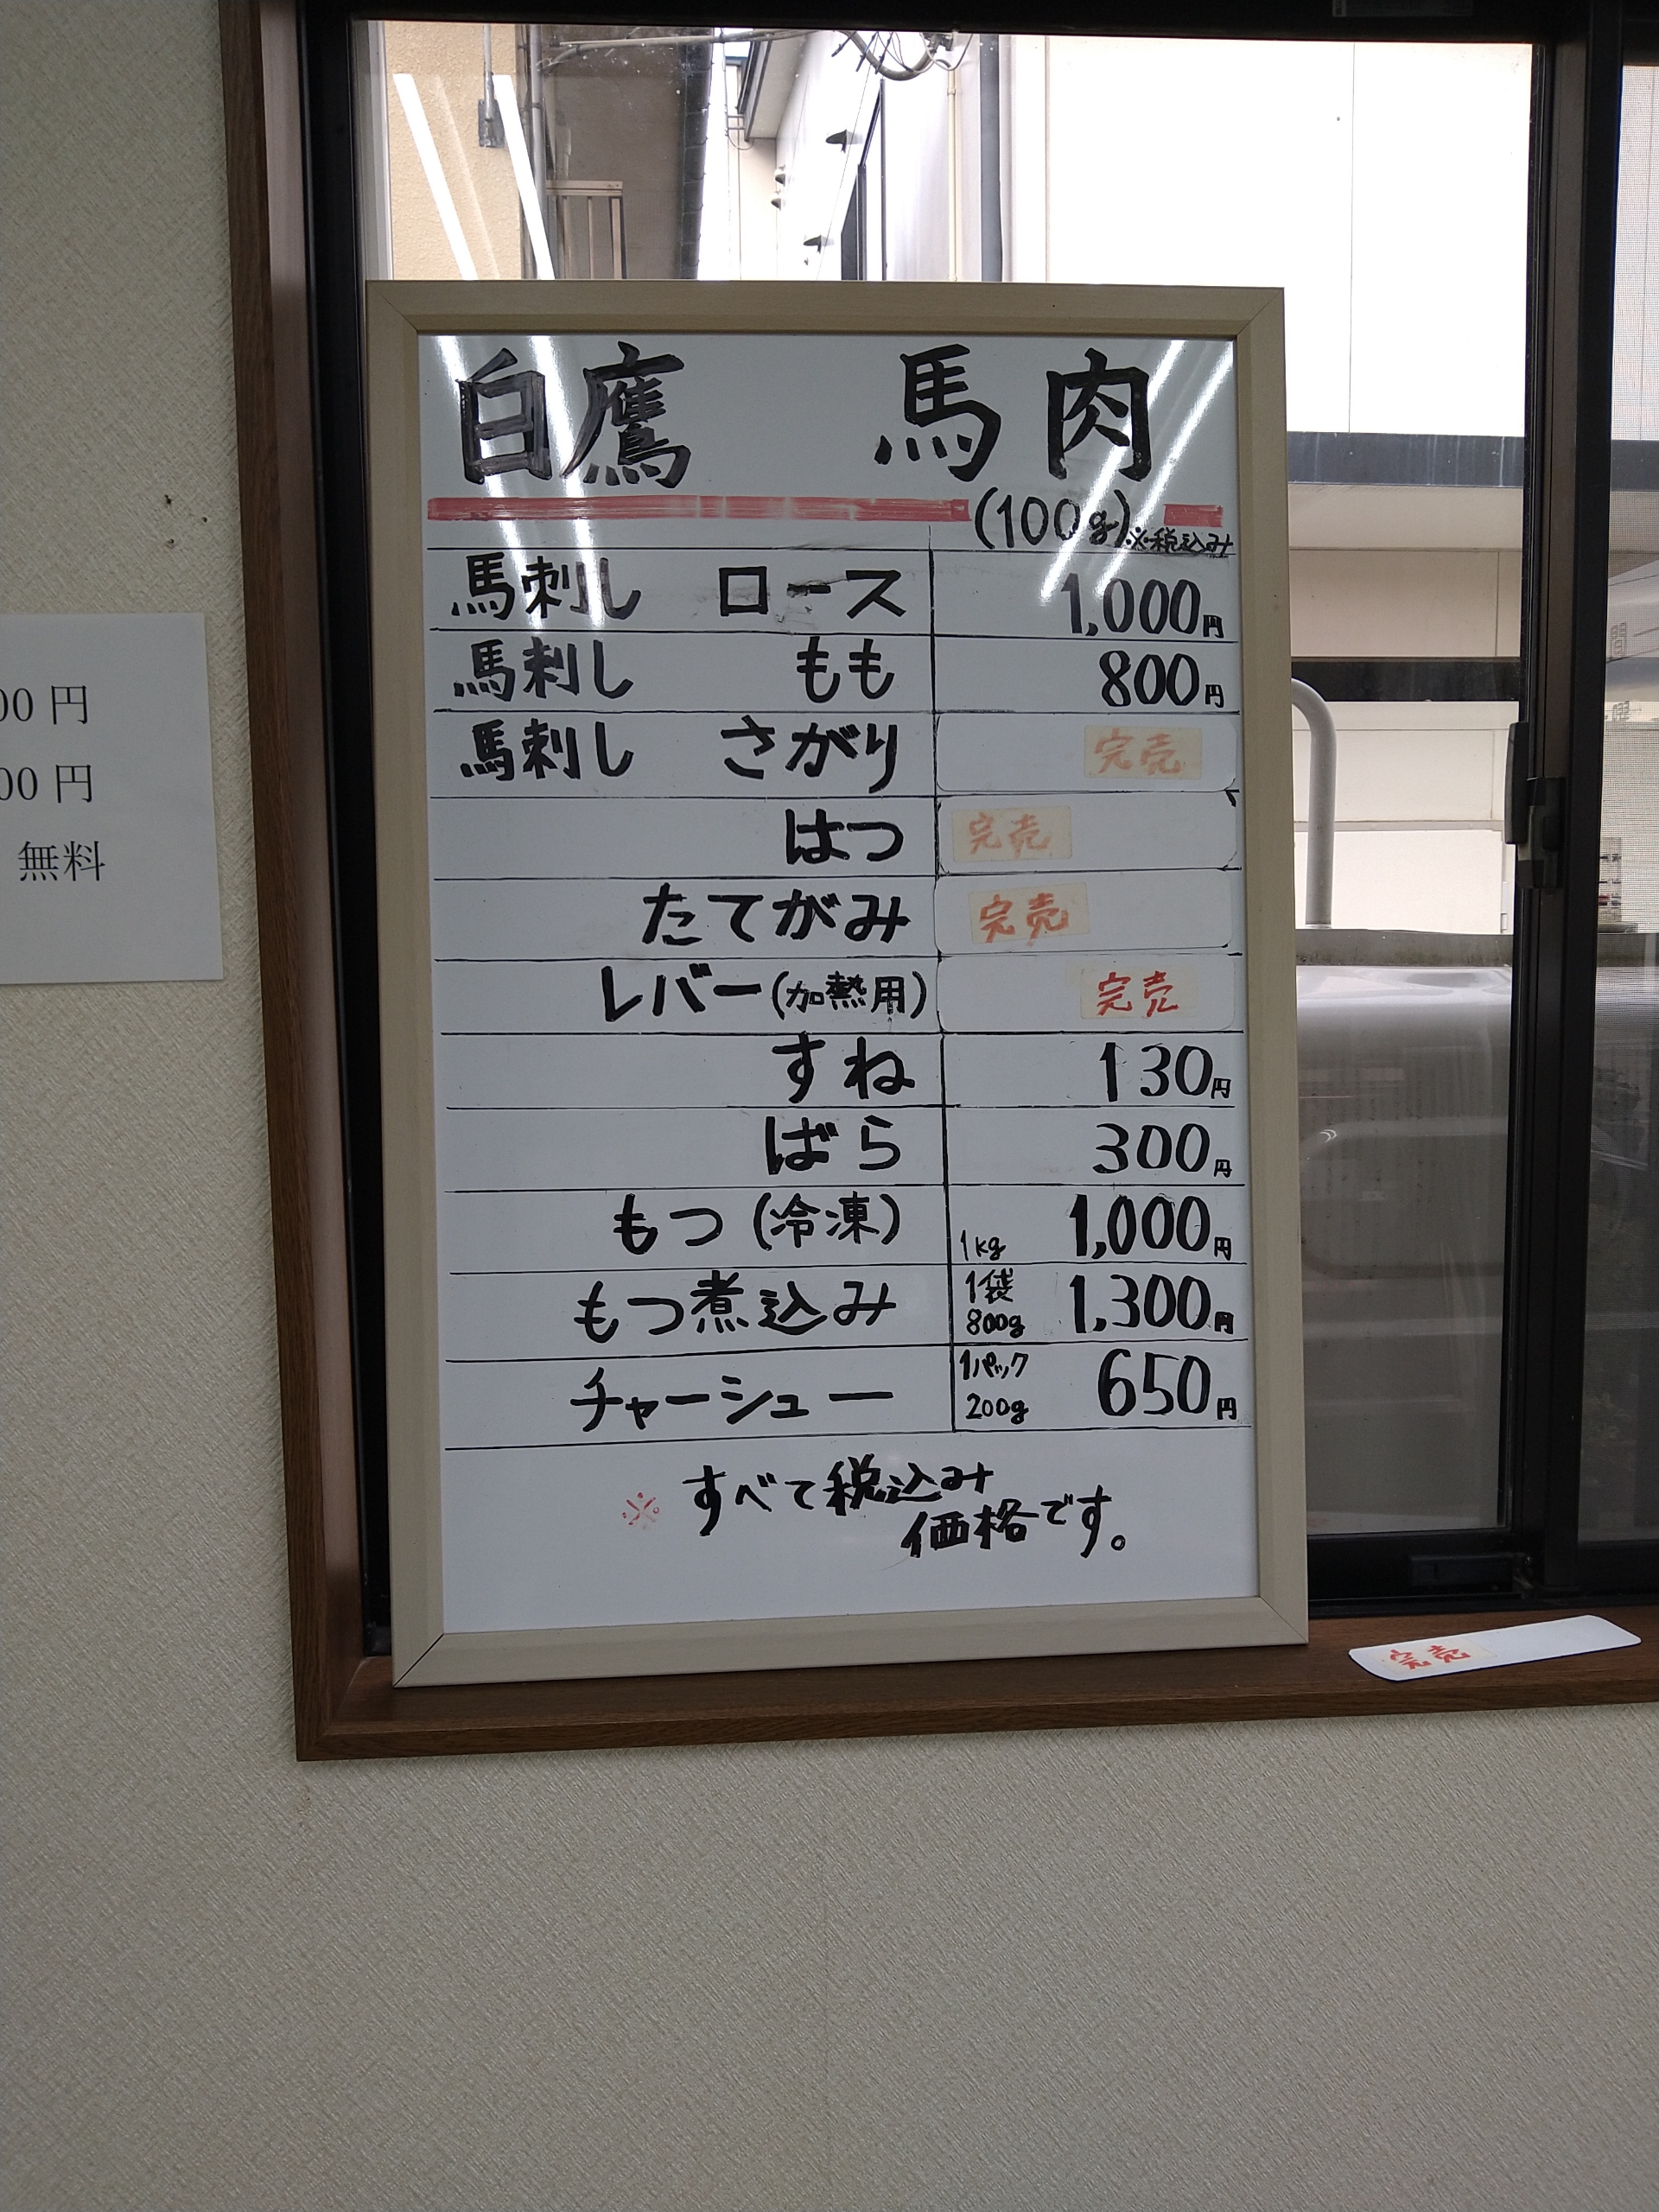 白鷹 馬肉
(100g)※税込み
馬刺し ロース 1,000円
馬刺し もも 800円
馬刺し さがり 完売
はつ 完売
たてがみ 完売
レバー(加熱用) 完売
すね 130円
ばら 300円
もつ(冷凍) 1kg 1,000円
もつ煮込み 1袋 800g 1,300円
チャーシュー 1パック 200g 650円
※ すべて税込み
価格です。
完売
00円
00円
無料